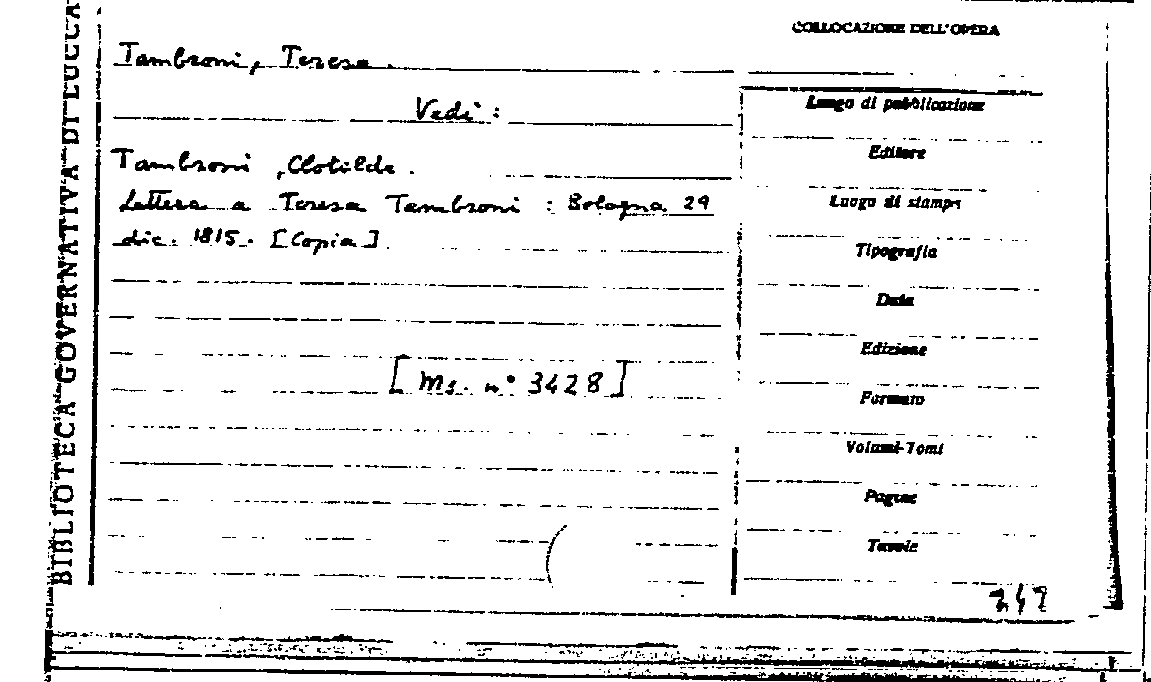 BIBLIOTECA GOVERNATIVA DI LUCCA
COLLOCAZIONE DELL'OPERA
Tambroni, Teresa.
Vedi:
Tambroni, Clotilde.
Lettera a Teresa Tambroni : Bologna 29
dic. 1815. [Copia].
[Ms. n° 3428]
Luogo di pubblicazione
Editore
Luogo di stampa
Tipografia
Data
Edizione
Formato
Volumi-Tomi
Pagine
Tavole